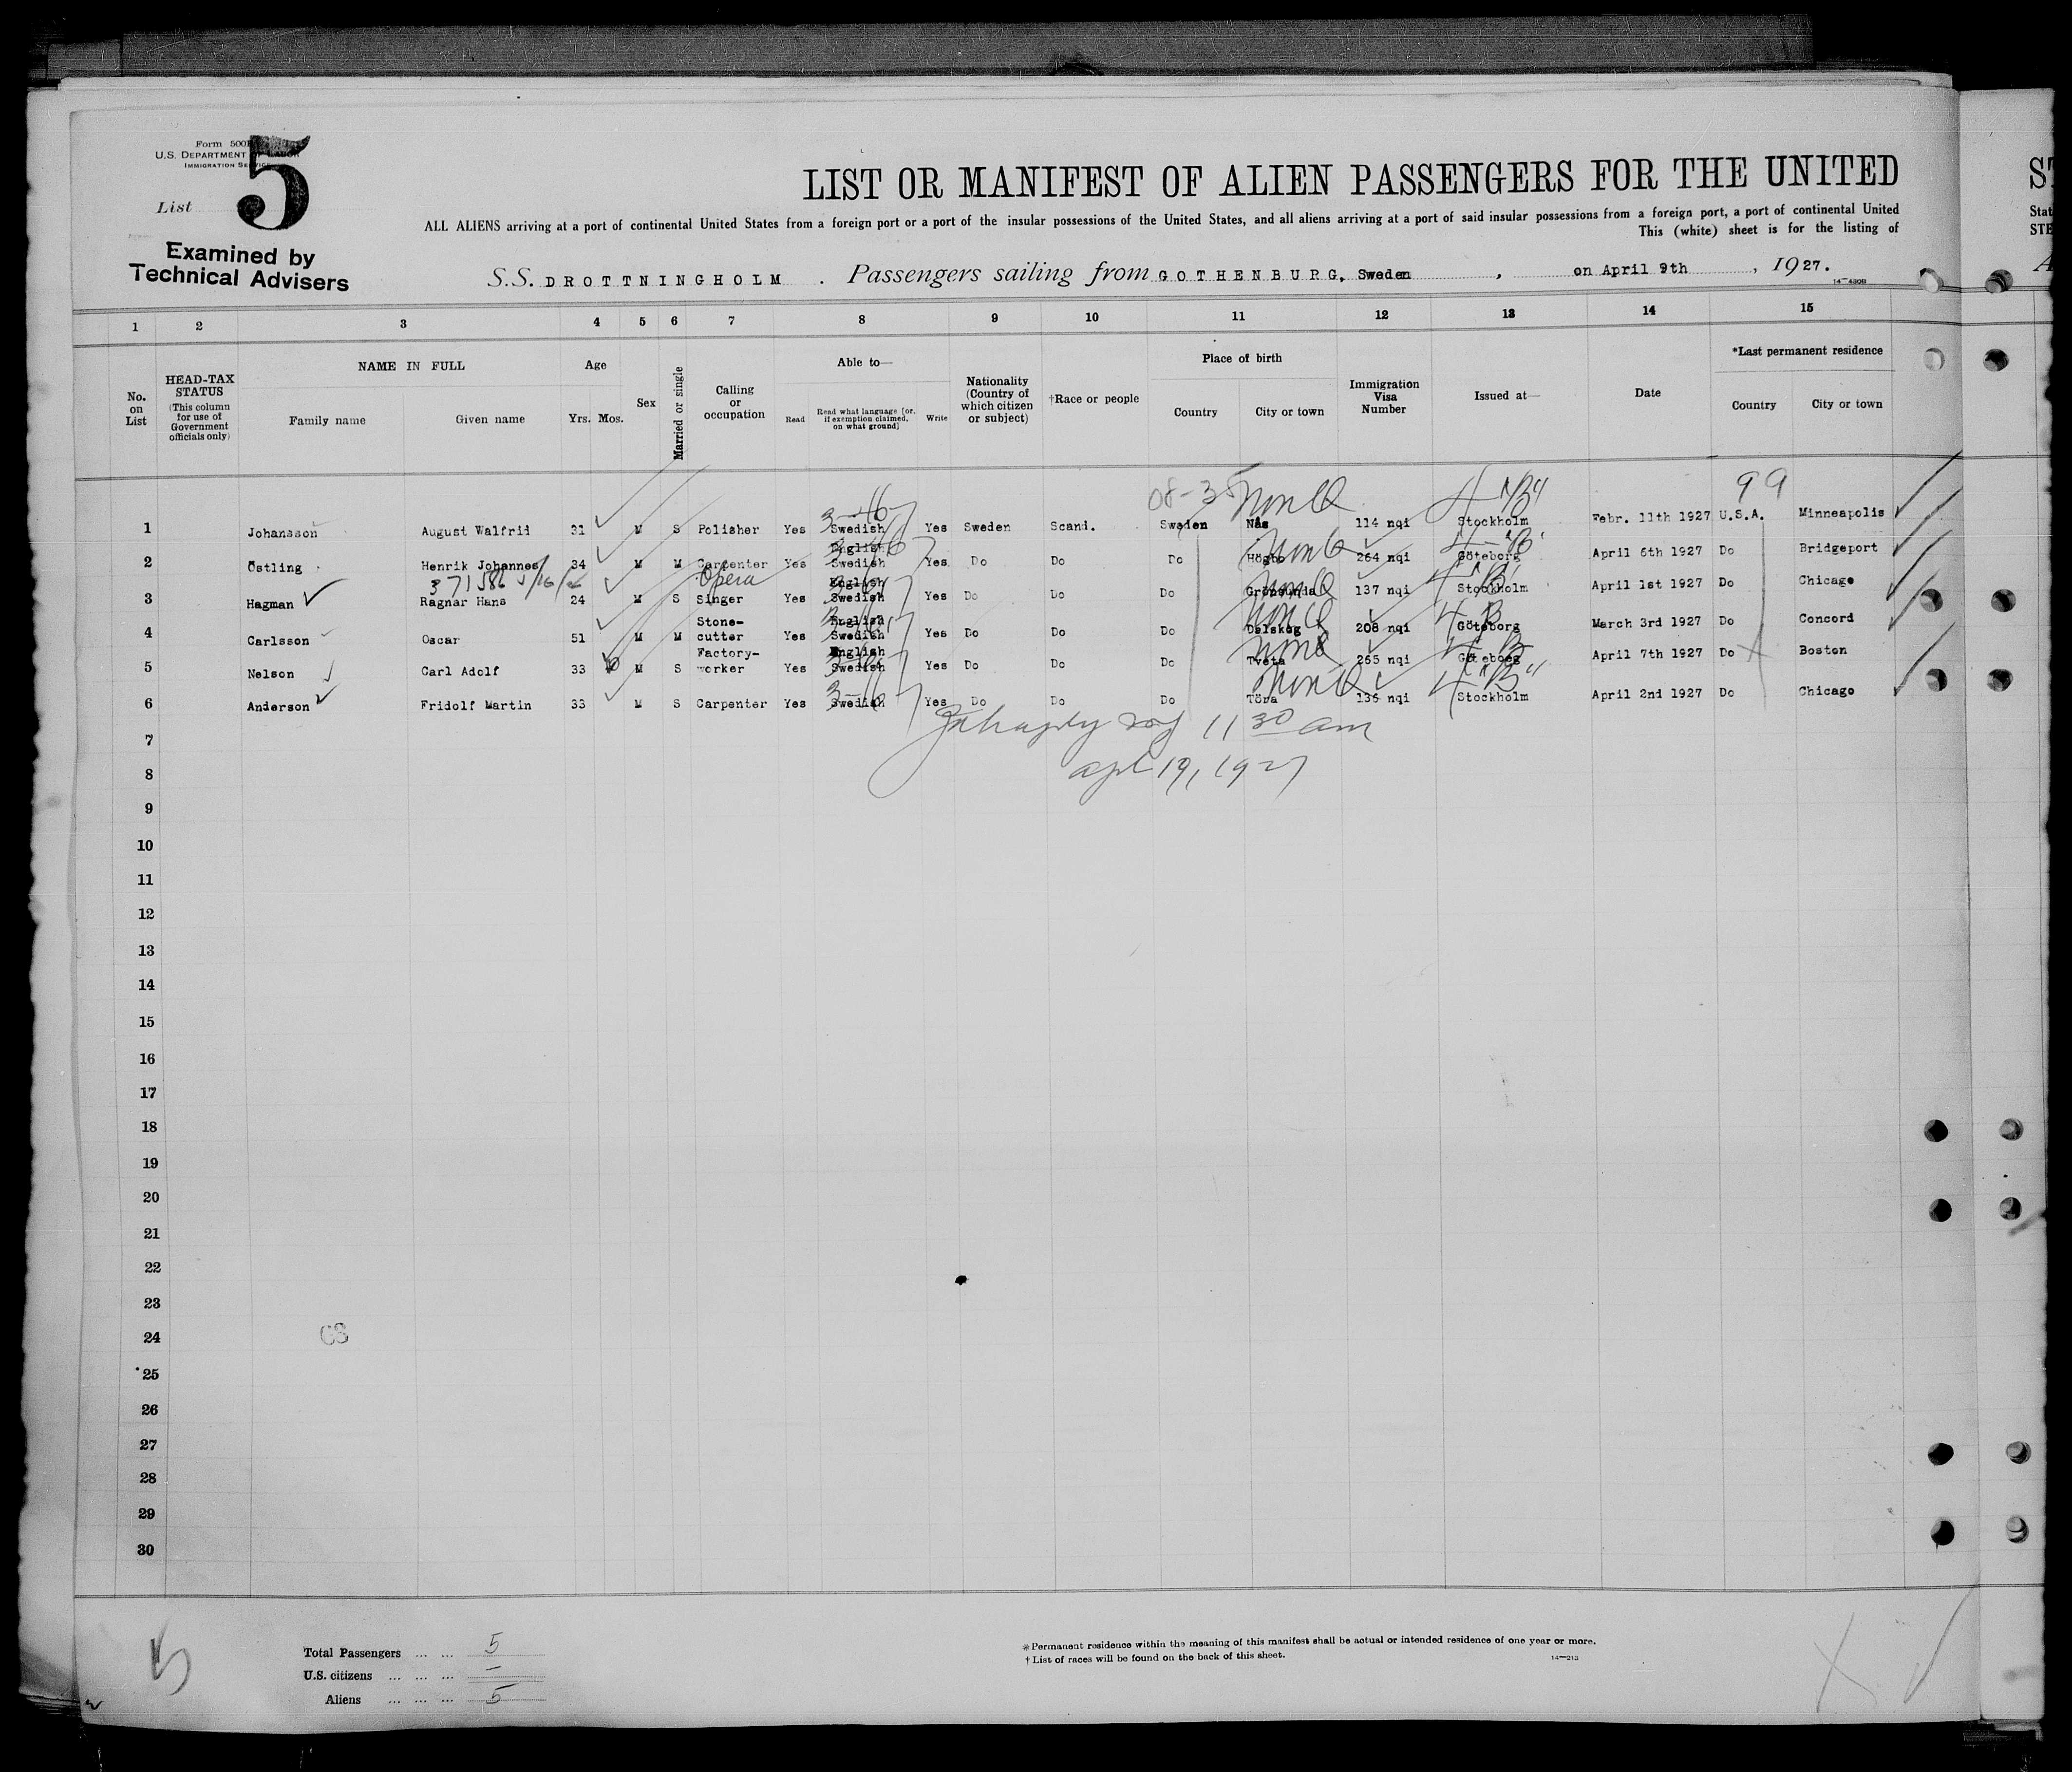 Form 500
U.S. DEPARTMENT OF LABOR
IMMIGRATION SERVICE
List 5
Examined by
Technical Advisers
LIST OR MANIFEST OF ALIEN PASSENGERS FOR THE UNITED
ALL ALIENS arriving at a port of continental United States from a foreign port or a port of the insular possessions of the United States, and all aliens arriving at a port of said insular possessions from a foreign port, a port of continental United
This (white) sheet is for the listing of
S.S. DROTTNINGHOLM . Passengers sailing from GOTHENBURG, Sweden , on April 9th , 1927.
1 2 3 4 5 6 7 8 9 10 11 12 13 14 15
No. on List
HEAD-TAX STATUS (This column for use of Government officials only)
NAME IN FULL
Family name Given name
Age
Yrs. Mos.
Sex
Married or single
Calling or occupation
Able to—
Read
Read what language [or, if exemption claimed, on what ground]
Write
Nationality (Country of which citizen or subject)
†Race or people
Place of birth
Country City or town
Immigration Visa Number
Issued at—
Date
*Last permanent residence
Country City or town
99
1 Johansson August Walfrid 31 M S Polisher Yes Swedish Yes Sweden Scand. Sweden Nås 114 nqi Stockholm Febr. 11th 1927 U.S.A. Minneapolis
2 Östling Henrik Johannes 34 M M Carpenter Yes English Swedish Yes Do Do Do Högbo 264 nqi Göteborg April 6th 1927 Do Bridgeport
3 Hagman Ragnar Hans 24 M S Opera Singer Yes English Swedish Yes Do Do Do 137 nqi Stockholm April 1st 1927 Do Chicago
4 Carlsson Oscar 51 M M Stone-cutter Yes English Swedish Yes Do Do Do Dalskog 208 nqi Göteborg March 3rd 1927 Do Concord
5 Nelson Carl Adolf 33 M S Factory-worker Yes English Swedish Yes Do Do Do Tveta 265 nqi Göteborg April 7th 1927 Do Boston
6 Anderson Fridolf Martin 33 M S Carpenter Yes Swedish Yes Do Do Do 136 nqi Stockholm April 2nd 1927 Do Chicago
11 30 am
7
8
apl 19, 1927
9
10
11
12
13
14
15
16
17
18
19
20
21
22
23
24
25
26
27
28
29
30
5
Total Passengers ... ... 5
U.S. citizens ... ... ... —
Aliens ... ... ... 5
*Permanent residence within the meaning of this manifest shall be actual or intended residence of one year or more.
†List of races will be found on the back of this sheet.
14—213